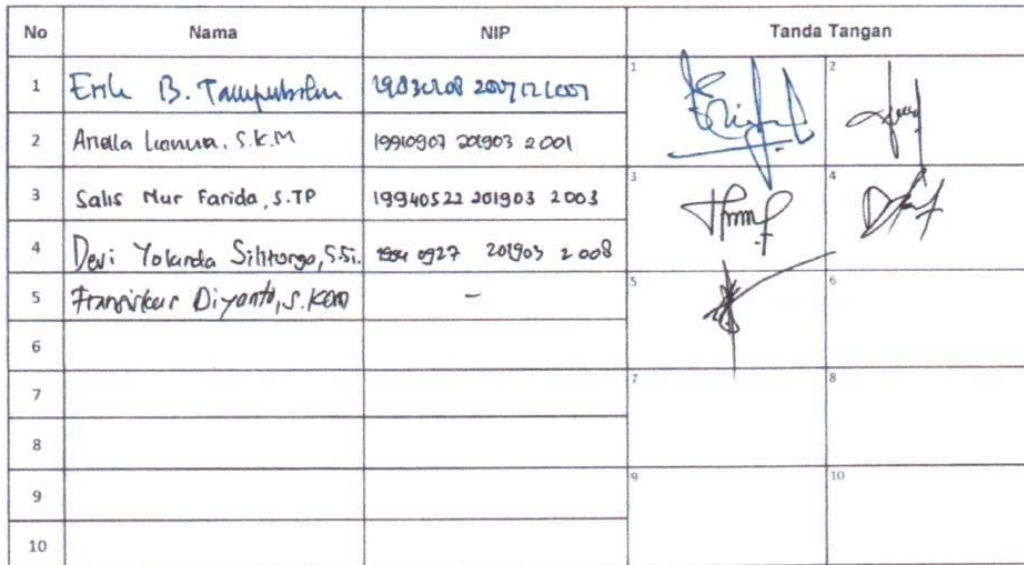 No Nama NIP Tanda Tangan
1 Erik B. Tampubolon 1 2
2 Ariella Lianua, S.K.M 19910907 201903 2 001
3 Salis Nur Farida, S.TP 19940522 201903 2003 3 4
4 Devi Yolanda Silitonga, S.Si. 0927 201903 2 008
5 Fransiskus Diyanto, S.Kom - 5 6
6
7 7 8
8
9 9 10
10